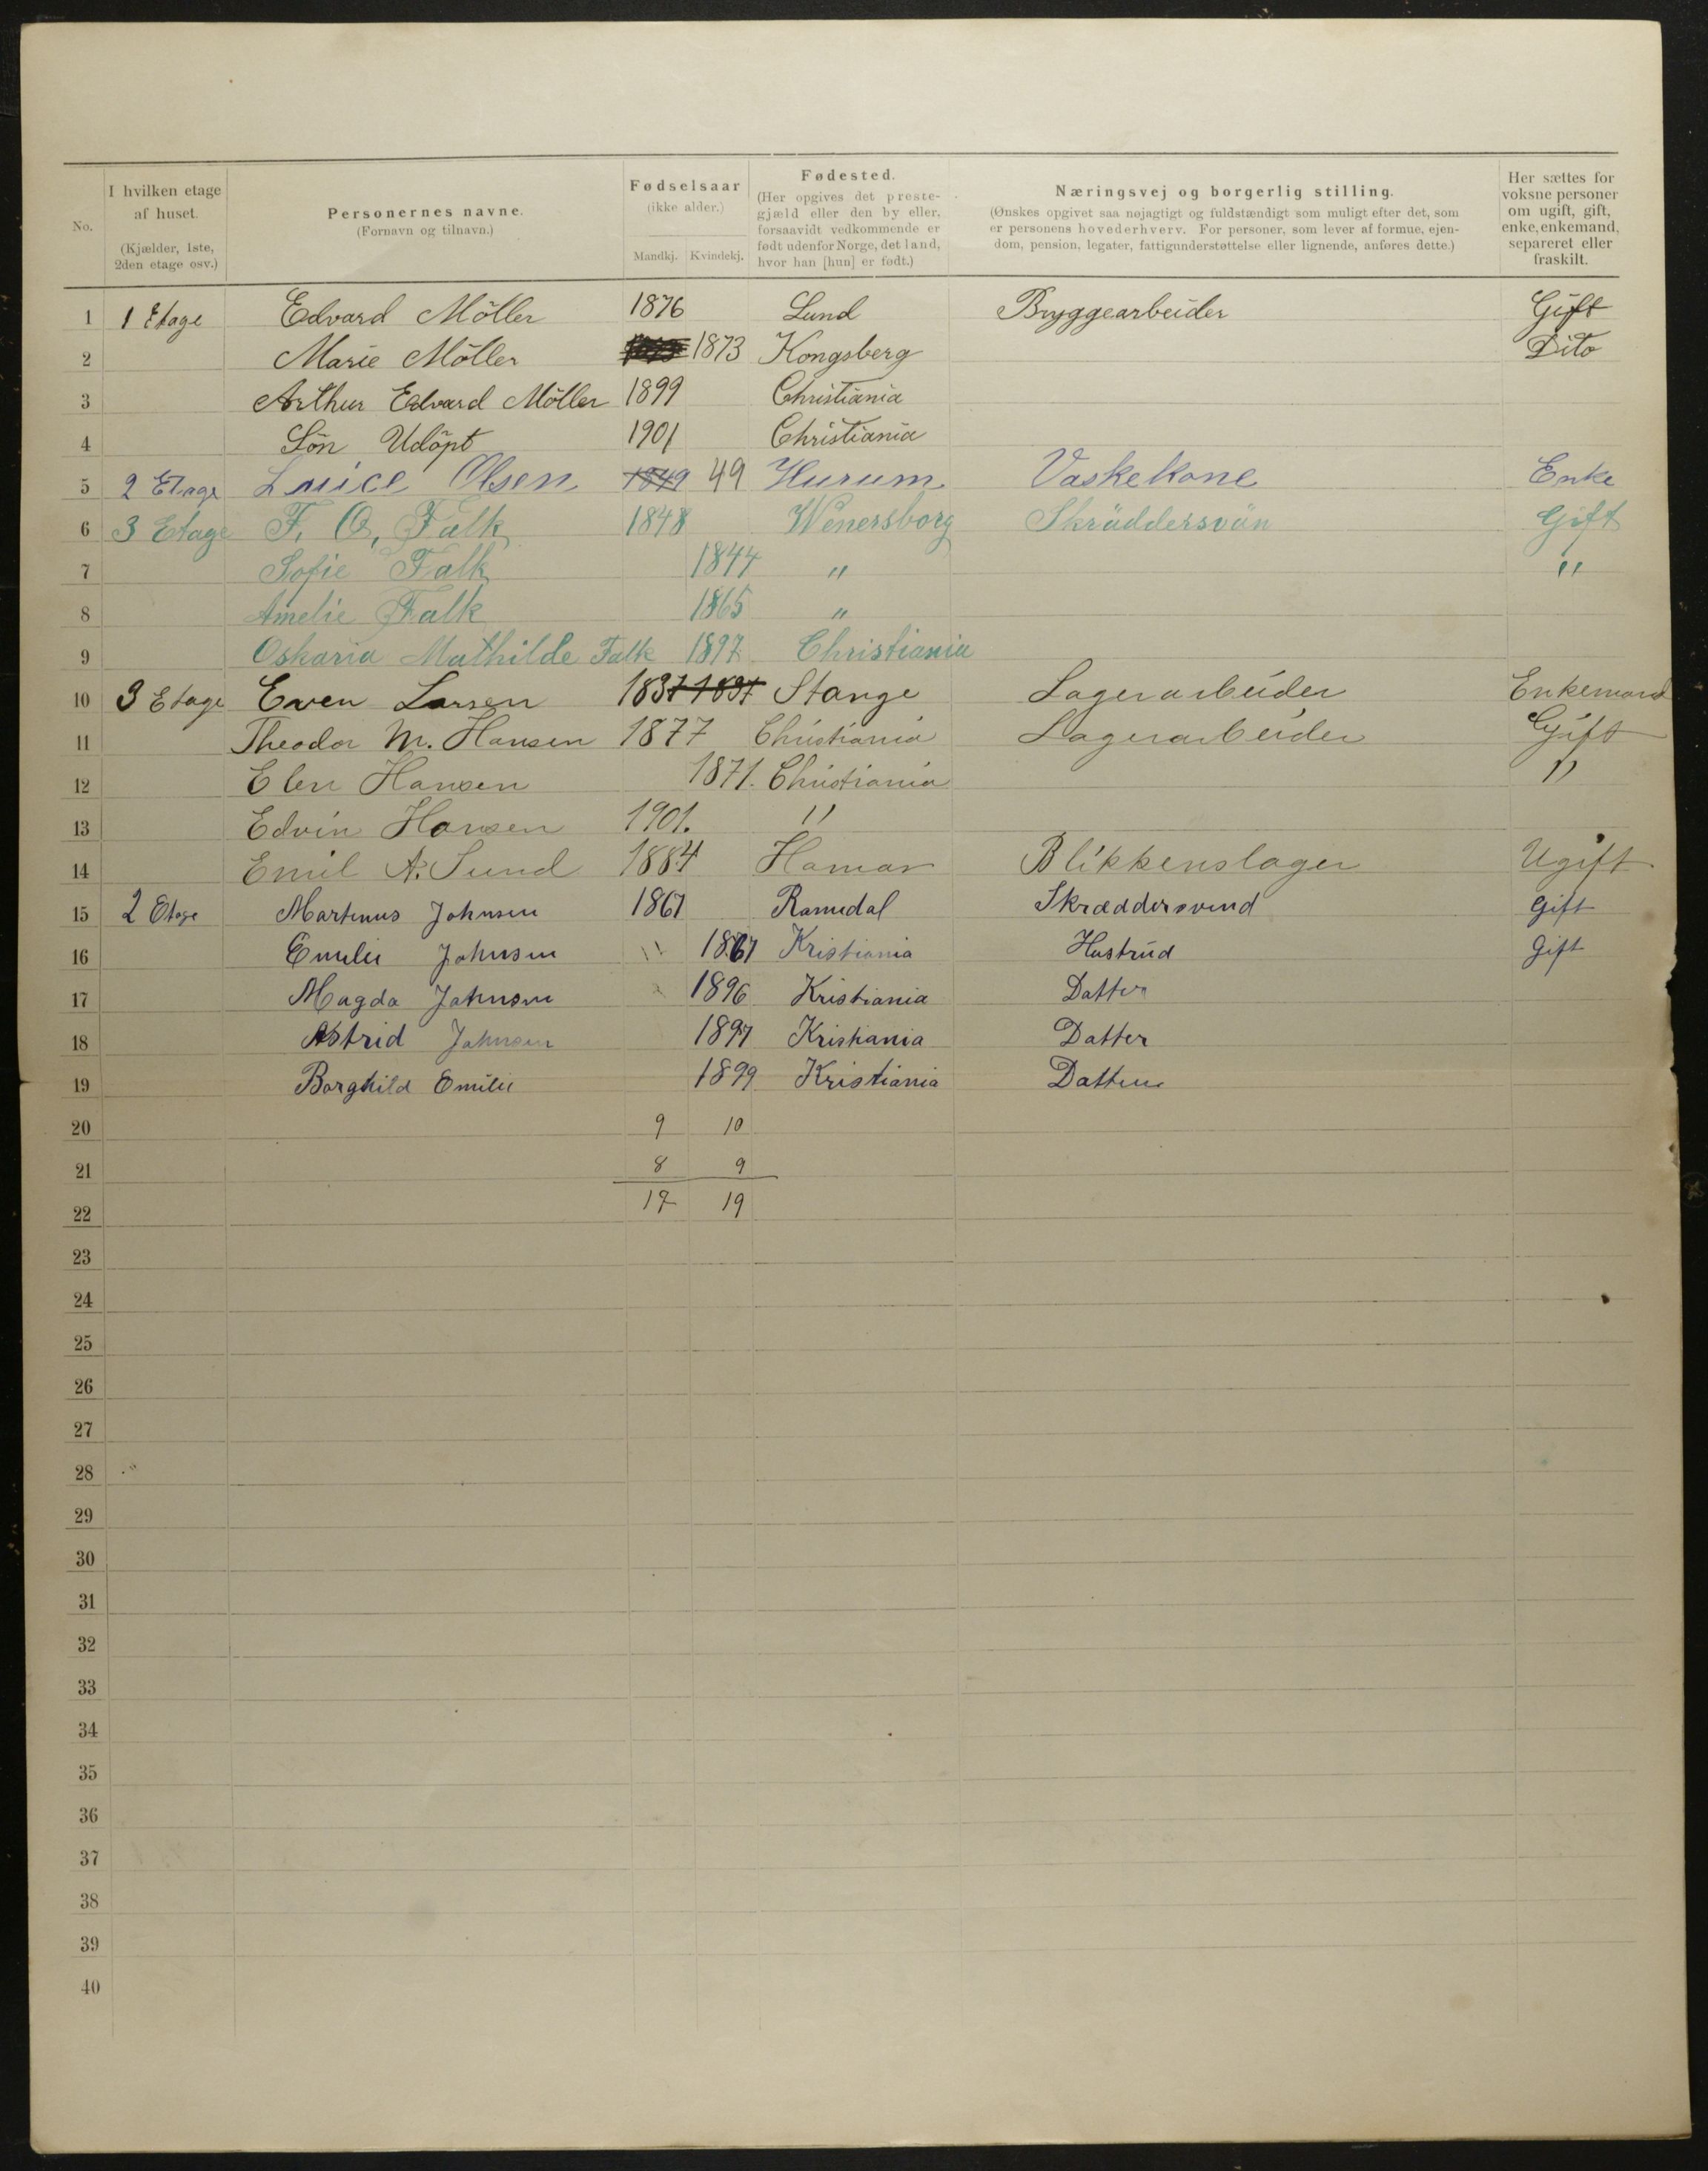 No. | I hvilken etage af huset. (Kjælder, 1ste, 2den etage osv.) | Personernes navne. (Fornavn og tilnavn.) | Fødselsaar (ikke alder.) Mandkj. Kvindekj. | Fødested. (Her opgives det prestegjæld eller den by eller, forsaavidt vedkommende er født udenfor Norge, det land, hvor han [hun] er født.) | Næringsvej og borgerlig stilling. (Ønskes opgivet saa nøjagtigt og fuldstændigt som muligt efter det, som er personens hovederhverv. For personer, som lever af formue, ejendom, pension, legater, fattigunderstøttelse eller lignende, anføres dette.) | Her sættes for voksne personer om ugift, gift, enke, enkemand, separeret eller fraskilt.
1 1 Etage Edvard Möller 1876 Lund Bryggearbeider Gift
2 Marie Möller 1873 Kongsberg Dito
3 Arthur Edvard Möller 1899 Christiania
4 Sön Udöpt 1901 Christiania
5 2 Etage Louice Olsen 1849 49 Hurum Vaskekone Enke
6 3 Etage F. O, Falk 1848 Wenersborg Skräddersvän Gift
7 Sofie Falk 1844 " "
8 Amelie Falk 1865 "
9 Oskaria Mathilde Falk 1897 Christiania
10 3 Etage Even Larsen 1837 1837 Stange Lagerarbeider Enkemand
11 Theodor M. Hansen 1877 Christiania Lagerarbeider Gift
12 Elen Hansen 1871. Christiania "
13 Edvin Hansen 1901. "
14 Emil A. Sund 1884 Hamar Blikkenslager Ugift
15 2 Etage Martinus Johnsen 1867 Ramsdal Skræddersvend Gift
16 Emilie Johnsen " 1867 Kristiania Hustrud Gift
17 Magda Johnsen 1896 Kristiania Datter
18 Astrid Johnsen 1897 Kristiania Datter
19 Borghild Emilie 1899 Kristiania Datter
20 9 10
21 8 9
22 17 19
23
24
25
26
27
28
29
30
31
32
33
34
35
36
37
38
39
40